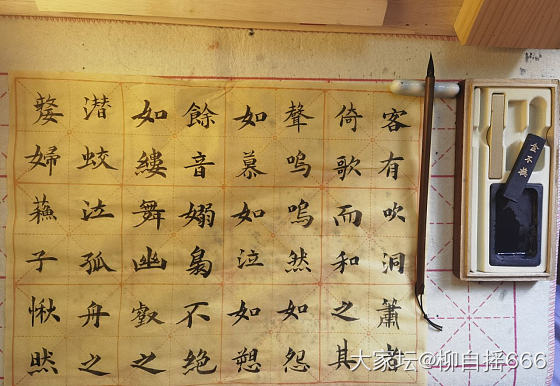 客有吹洞簫者
倚歌而和之其
聲嗚嗚然如怨
如慕如泣如愬
餘音嫋不絕
如縷舞幽壑之
潜蛟泣孤舟之
嫠婦蘇子愀然
金不換
大家坛@柳白摇666